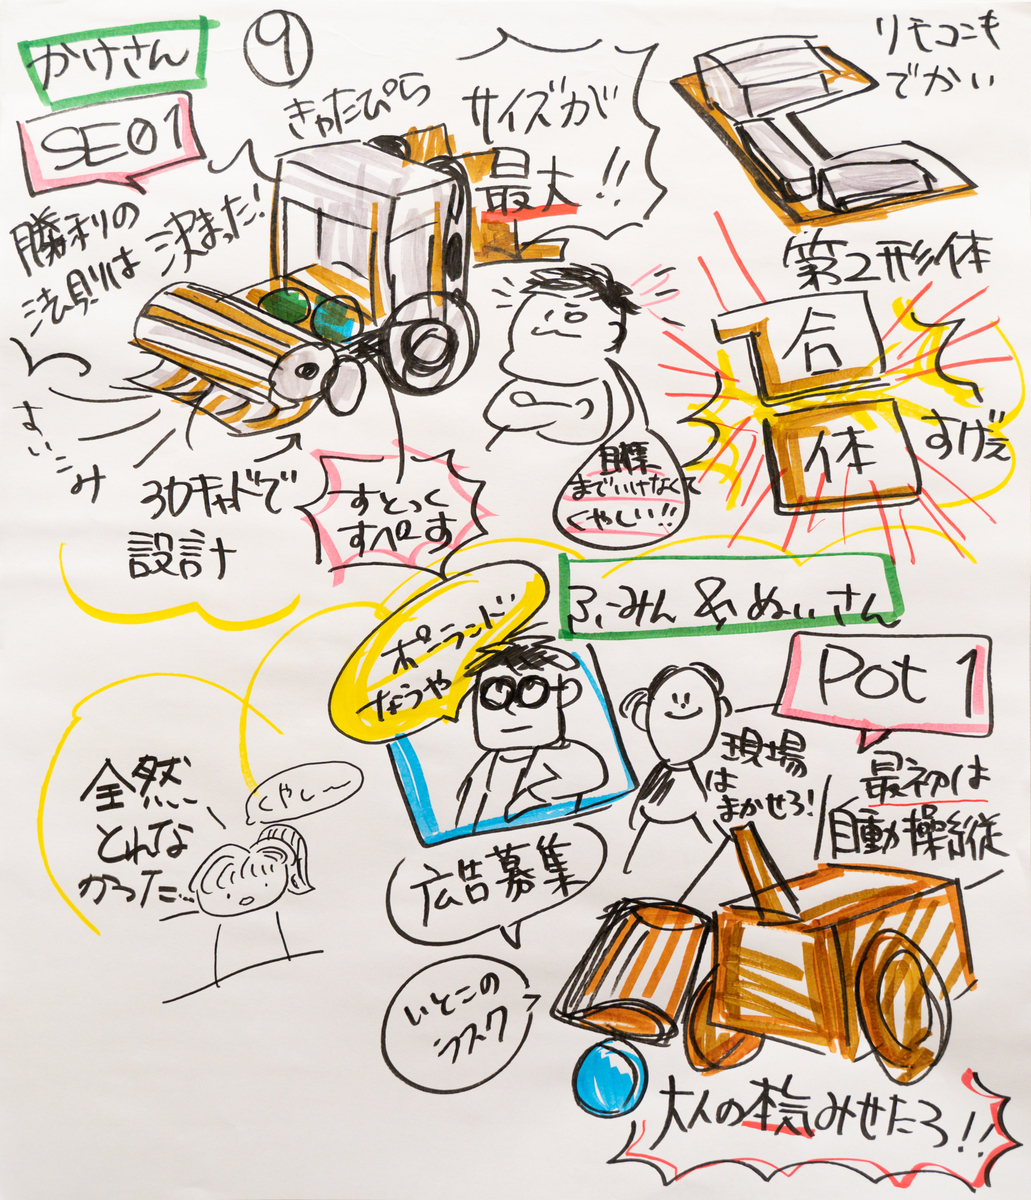 かけさん
⑨
SE01
勝利の
法則は
決まった!
きゃたぴら
サイズが
最大!!
リモコンも
でかい
第2形体
合
体
すげぇ
すいこみ
3Dキャドで
設計
すとっく
すぺーす
目標
までいけなくて
くやしい!!
ふーみん & ぬぃさん
ポーランド
なうや
Pot 1
現場
は
まかせろ!
最初は
自動操縦
全然
とれな
かった…
くやし〜
広告募集
いとこの
ラスク
大人の本気みせたろ!!